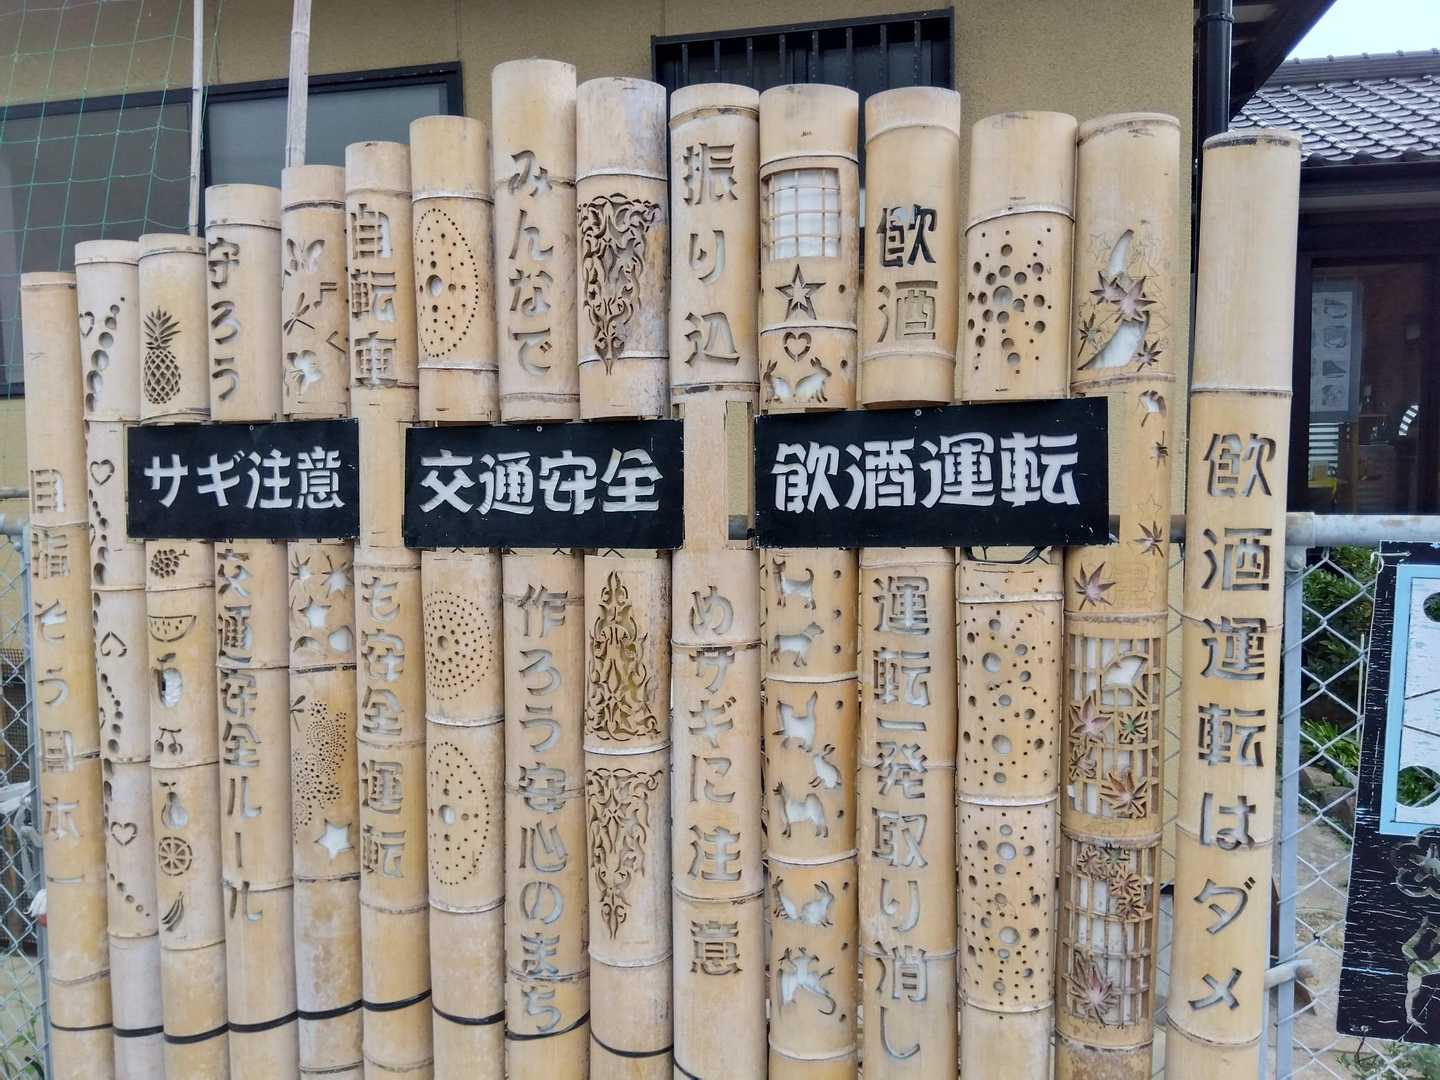 飲酒運転はダメ
飲酒運転一発取り消し
振り込めサギに注意
みんなで作ろう安心のまち
自転車も安全運転
守ろう交通安全ルール
目指そう日本一
サギ注意
交通安全
飲酒運転